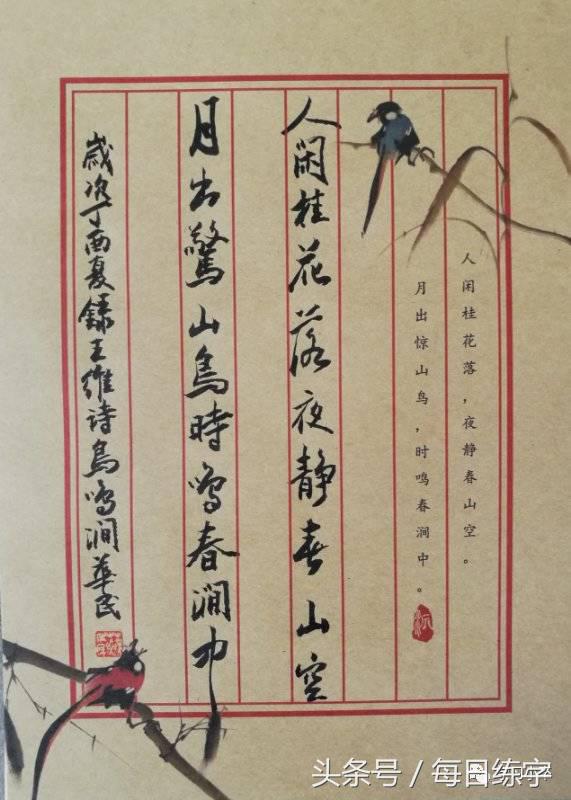 人闲桂花落，夜静春山空。
月出惊山鸟，时鸣春涧中。
人闲桂花落夜静春山空
月出驚山鳥時鳴春涧中
歲次丁酉夏錄王維诗鳥鳴涧華民
头条号／每日练字